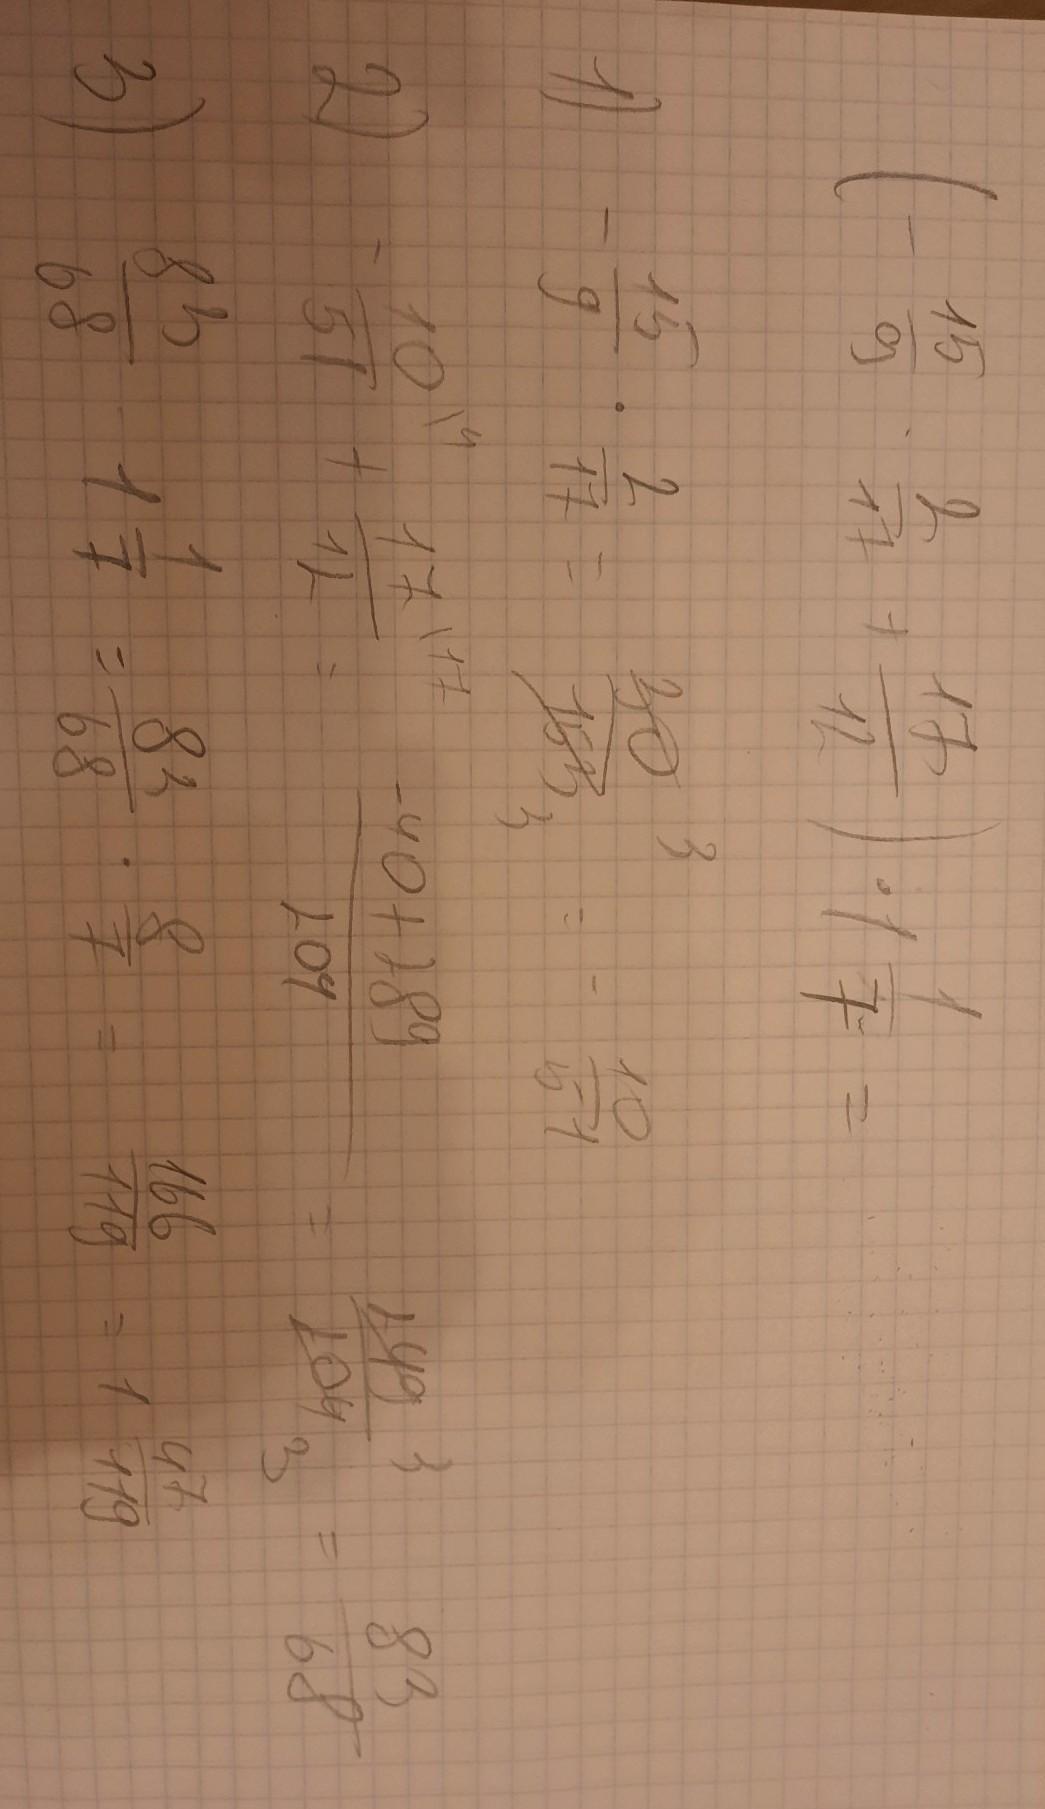 (- 15/9 · 2/17 + 17/12) · 1 1/7 =
1) - 15/9 · 2/17 = 30/153 3 3 = - 10/51
2) - 10/51 \4 + 17/12 \17 = -40+289/204 = 249/204 3 3 = 83/68
3) 83/68 · 1 1/7 = 83/68 · 8/7 = 166/119 = 1 47/119